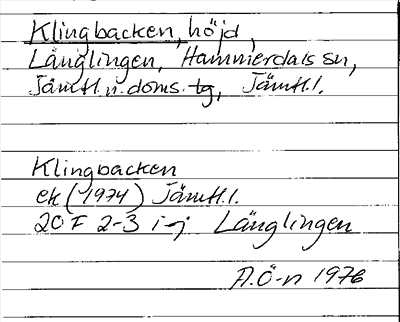 Klingbacken, höjd,
Långlingen, Hammerdals sn,
Jämtl.n.doms.tg, Jämtl.l.
Klingbacken
ek (1974) Jämtl.l.
20 F 2-3 i-j Långlingen
A.Ö-n 1976